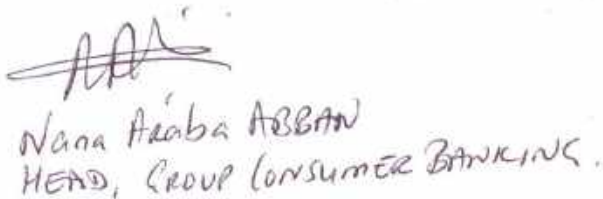 Nana Araba ABBAN
HEAD, GROUP CONSUMER BANKING.